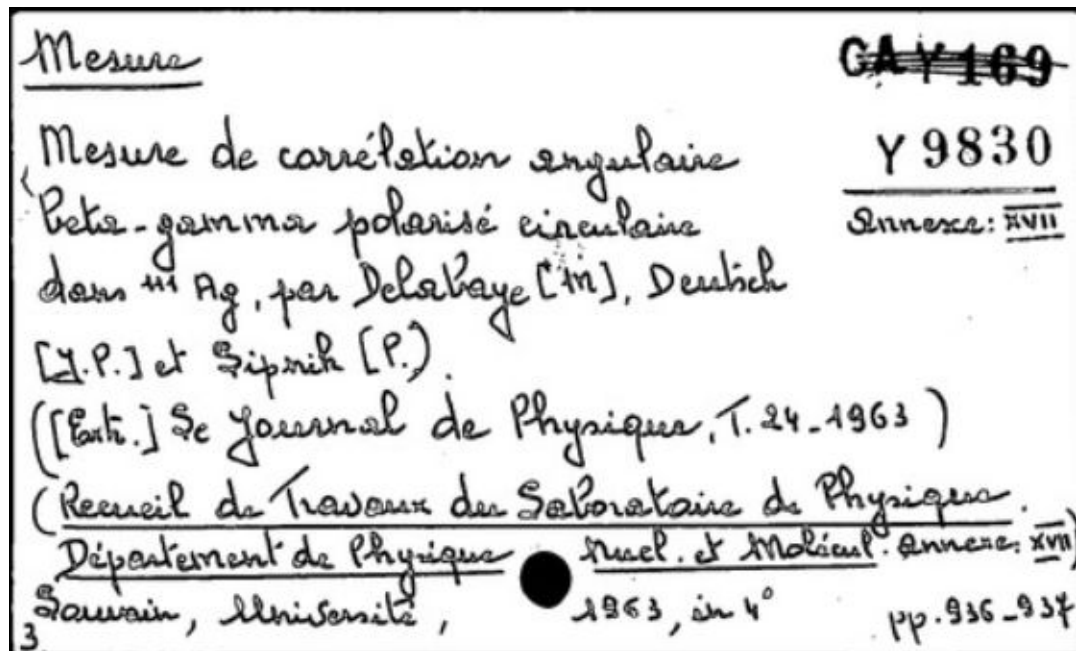 Mesure
CAY169
Mesure de corrélation angulaire
Y 9830
beta-gamma polarisé circulaire
Annexe: XVII
dans 111 Ag, par Delabaye [M], Deutsch
[J.P.] et Lipnik [P.).
([Extr.] Le Journal de Physique, T. 24 - 1963)
(Recueil de Travaux du Laboratoire de Physique.
Département de Physique Nucl. et Molécul. Annexe: XVII)
Louvain, Université, 1963, in 4° pp. 936-937
3